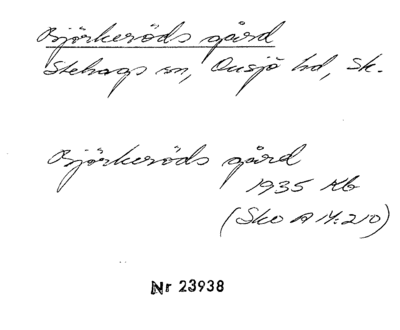 Björkeröds gård
Stehags sn, Onsjö hd, Sk.
Björkeröds gård
1935 Kb
(Sko A 14:210)
Nr 23938